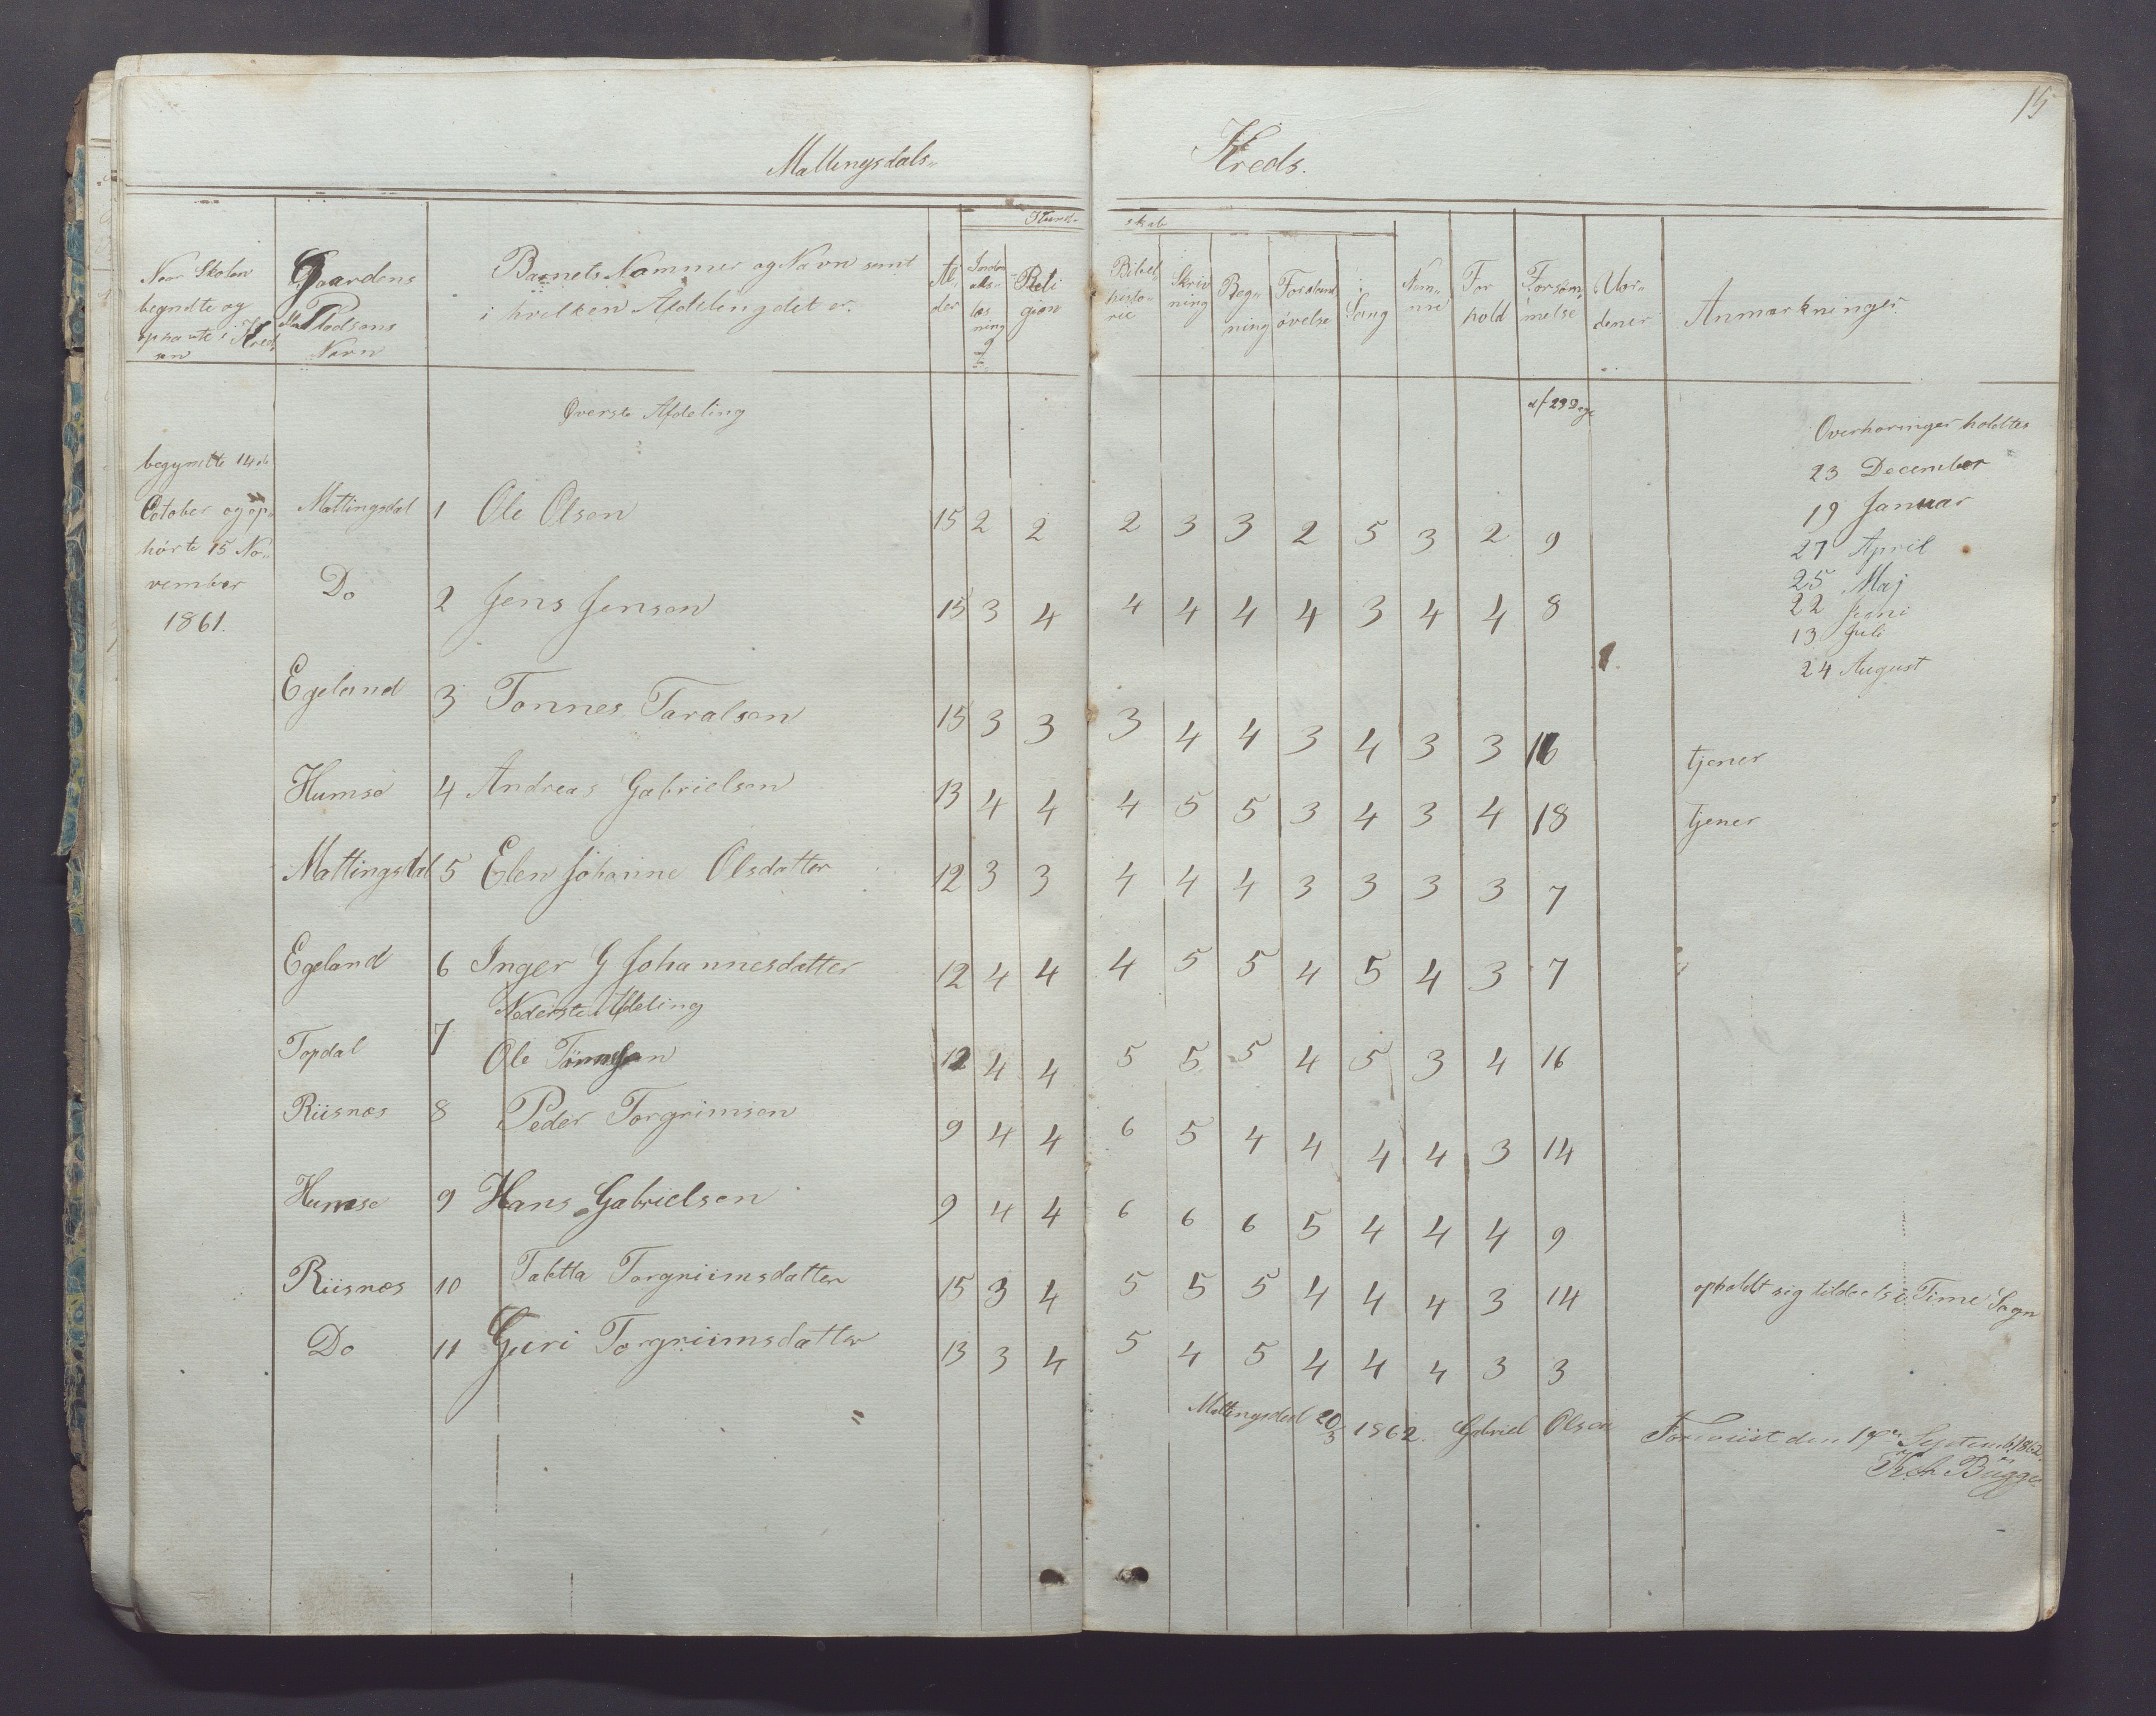 15
Mattingsdals- Kreds.
Naar Skolen begyndte og ophørte i Kred-sen
Gaardens eller Pladsens Navn
Barnets Nummer og Navn samt i hvilken Afdeling det er.
Al-der
Kund-skab
Religion
Bibelhisto-rie
Skriv ning
Reg-ning
Forstands øvelse
i Sang
Nem-me
For hold
Forsøm-melse
Uor-dener
Anmærkninger.
Øverste Afdeling
af 29 Dage
begyndte 14de October og op-hørte 15 No-vember 1861.
Mattingsdal 1 Ole Olsen 15 2 2 2 3 3 2 5 3 2 9
Do 2 Jens Jensen 15 3 4 4 4 4 4 3 4 4 8
Egeland 3 Tonnes Taralsen 15 3 3 3 4 4 3 4 3 3 16 tjener
Humsø 4 Andreas Gabrielsen 13 4 4 4 5 5 3 4 3 4 18 tjener
Mattingsdal 5 Elen Johanne Olsdatter 12 3 3 4 4 4 3 3 3 3 7
Egeland 6 Inger G Johannesdatter 12 4 4 4 5 5 4 5 4 3 7
Nederste Afdeling
Topdal 7 Ole Tønnesen 12 4 4 5 5 5 4 5 3 4 16
Riisnes 8 Peder Torgrimsen 9 4 4 6 5 4 4 4 4 3 14
Humsø 9 Hans Gabrielsen 9 4 4 6 6 6 5 4 4 4 9
Riisnes 10 Tabtta Torgriimsdatter 15 3 4 5 5 5 4 4 4 3 14 opholdt sig tildeels i Time Sogn
Do 11 Guri Torgriimsdatter 13 3 4 5 4 5 4 4 4 3 3
Overhøringer holdtes
23 December
19 Januar
27 April
25 Maj
22 Juni
13 Juli
24 August
Mattingsdal 20/3 1862. Gabriel Olsen
Foreviist den 17de Septemb. 1862.
Bugge